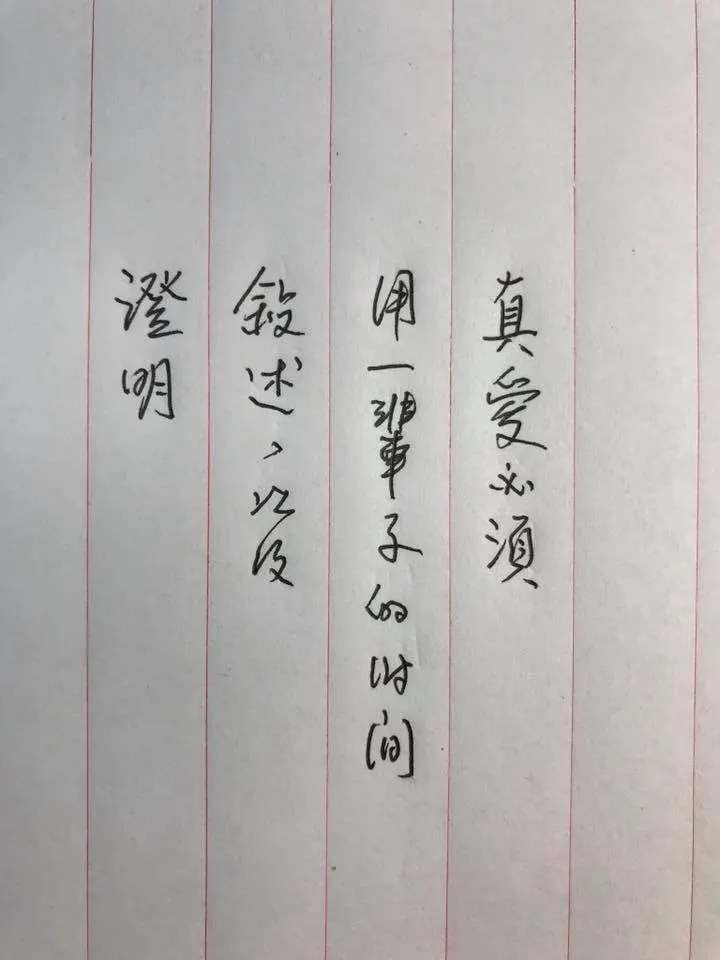 真愛必須
用一輩子的时间
敘述、以及
證明